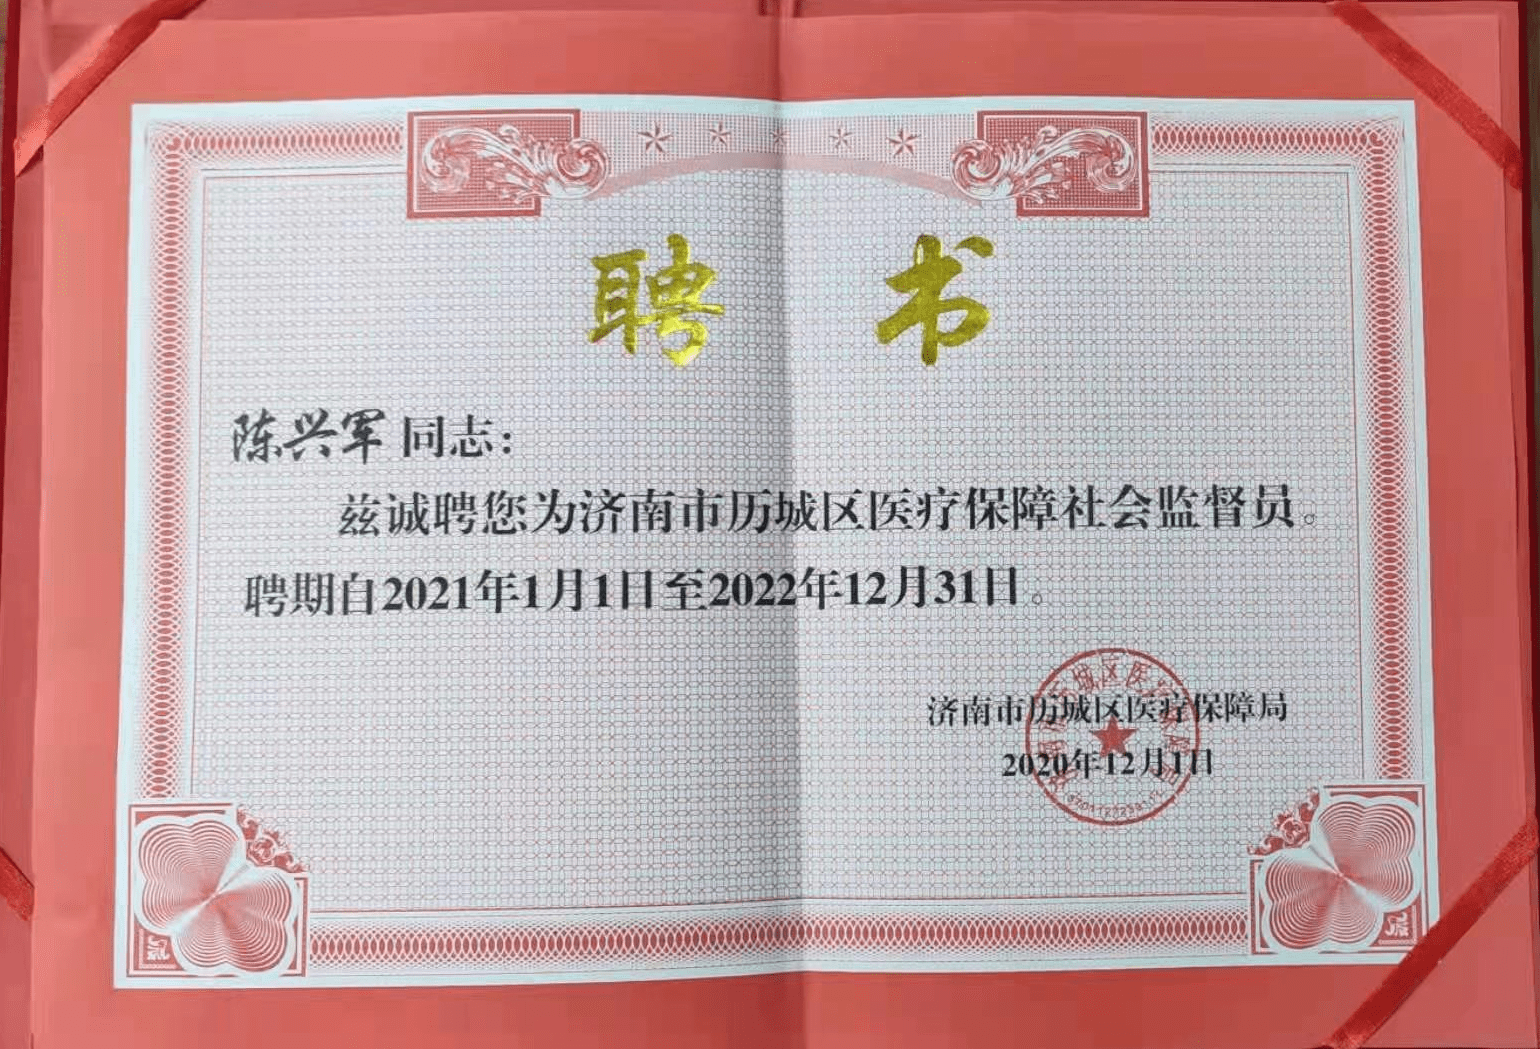 聘 书
陈兴军 同志：
兹诚聘您为济南市历城区医疗保障社会监督员。
聘期自2021年1月1日至2022年12月31日。
济南市历城区医疗保障局
2020年12月1日